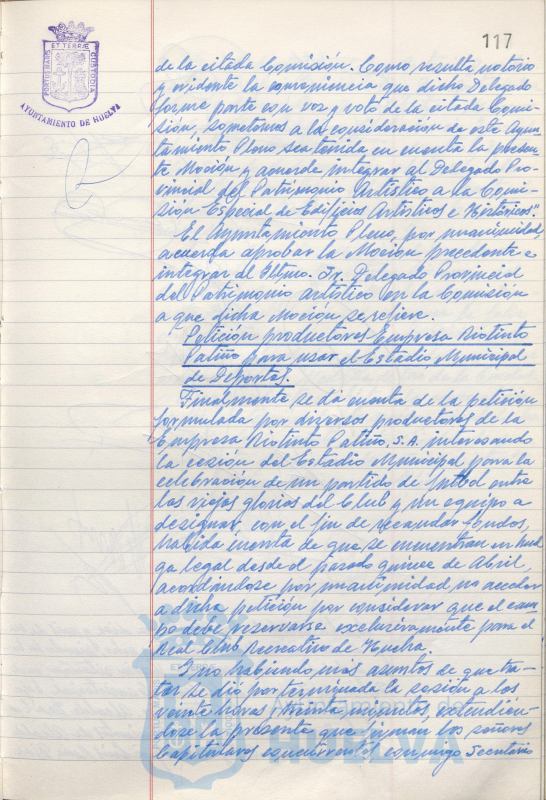 117
PORTUS MARIS ET TERRÆ CUSTODIA
AYUNTAMIENTO DE HUELVA
de la citada Comisión. Como resulta notorio
y evidente la conveniencia que dicho Delegado
forme parte con voz y voto de la citada Comi-
sión, sometemos a la consideración de este Ayun-
tamiento Pleno sea tenida en cuenta la presen-
te Moción y acuerde integrar al Delegado Pro-
vincial del Patrimonio Artístico a la Comi-
sión Especial de Edificios Artísticos e Históricos".
El Ayuntamiento Pleno, por unanimidad,
acuerda aprobar la Moción precedente e
integrar al Iltmo. Sr. Delegado Provincial
del Patrimonio artístico en la Comisión
a que dicha Moción se refiere.
Petición productores Empresa Riotinto
Patiño para usar el Estadio Municipal
de Deportes.
Finalmente se da cuenta de la petición
formulada por diversos productores de la
Empresa Riotinto Patiño, S.A. interesando
la cesión del Estadio Municipal para la
celebración de un partido de futbol entre
las viejas glorias del Club y un equipo a
designar, con el fin de recaudar fondos,
habida cuenta de que se encuentran en huel
ga legal desde el pasado quince de Abril,
acordándose por unanimidad, no acceder
a dicha petición por considerar que el cam
po debe reservarse exclusivamente para el
Real Club Recreativo de Huelva.
Y no habiendo más asuntos de que tra-
tar se dio por terminada la sesión a las
veinte horas treinta minutos, extendién-
dose la presente que firman los señores
Capitulares concurrentes conmigo Secretario